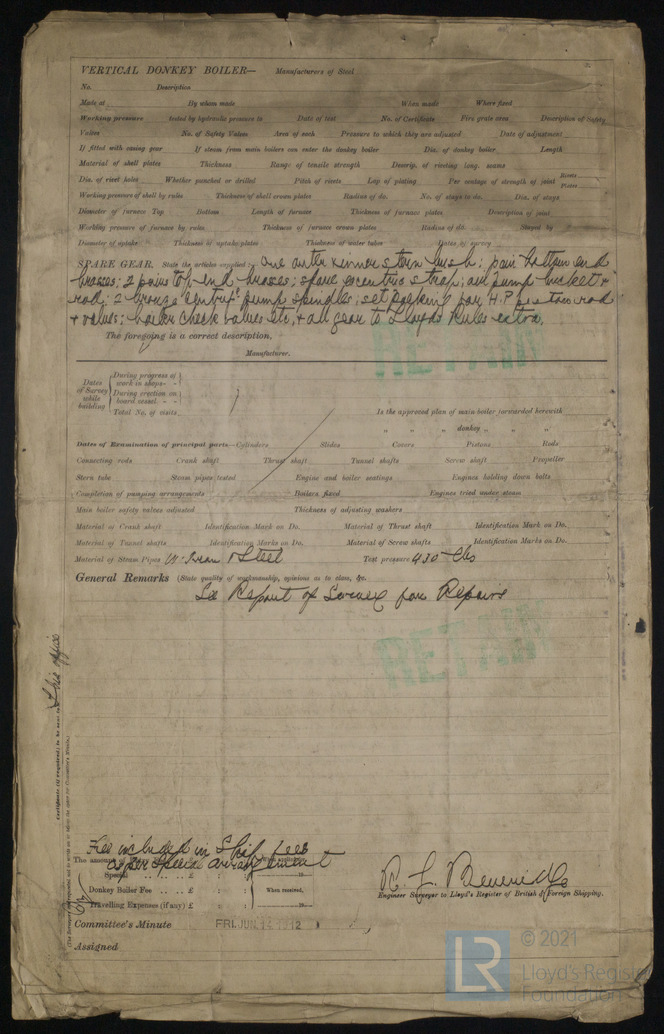 VERTICAL DONKEY BOILER— Manufacturers of Steel
No. Description
Made at By whom made When made Where fixed
Working pressure tested by hydraulic pressure to Date of test No. of Certificate Fire grate area Description of Safety
Valves No. of Safety Valves Area of each Pressure to which they are adjusted Date of adjustment
If fitted with easing gear If steam from main boilers can enter the donkey boiler Dia. of donkey boiler Length
Material of shell plates Thickness Range of tensile strength Descrip. of riveting long. seams
Dia. of rivet holes Whether punched or drilled Pitch of rivets Lap of plating Per centage of strength of joint Rivets Plates
Working pressure of shell by rules Thickness of shell crown plates Radius of do. No. of stays to do. Dia. of stays
Diameter of furnace Top Bottom Length of furnace Thickness of furnace plates Description of joint
Working pressure of furnace by rules Thickness of furnace crown plates Radius of do. Stayed by
Diameter of uptake Thickness of uptake plates Thickness of water tubes Dates of survey
SPARE GEAR. State the articles supplied:— One outer stern bush; pair bottom end
brasses; 2 pairs top end brasses; spare eccentric strap; air pump bucket &
rod; 2 bronze centrif. pump spindles; set packing for H.P. piston rod
& valves; boiler check valves etc, & all gear to Lloyds Rules extra.
The foregoing is a correct description,
Manufacturer.
Dates of Survey while building
During progress of work in shops - -
During erection on board vessel - -
Total No. of visits
Is the approved plan of main boiler forwarded herewith
" " " donkey " " "
Dates of Examination of principal parts—Cylinders Slides Covers Pistons Rods
Connecting rods Crank shaft Thrust shaft Tunnel shafts Screw shaft Propeller
Stern tube Steam pipes tested Engine and boiler seatings Engines holding down bolts
Completion of pumping arrangements Boilers fixed Engines tried under steam
Main boiler safety valves adjusted Thickness of adjusting washers
Material of Crank shaft Identification Mark on Do. Material of Thrust shaft Identification Mark on Do.
Material of Tunnel shafts Identification Marks on Do. Material of Screw shafts Identification Marks on Do.
Material of Steam Pipes & Steel Test pressure 430 lbs
General Remarks (State quality of workmanship, opinions as to class, &c.
See Report of for Repairs
RETAIN
RETAIN
Certificate (if required) to be sent to this office
Fee included in Ship fees
as per Special arrangement
The amount
Special .. .. £ : :
Donkey Boiler Fee .. .. £ : : When received,
Travelling Expenses (if any) £ : :
Engineer Surveyor to Lloyd's Register of British & Foreign Shipping.
Committee's Minute FRI. JUN 1912
Assigned
LR © 2021
Lloyd's Register
Foundation